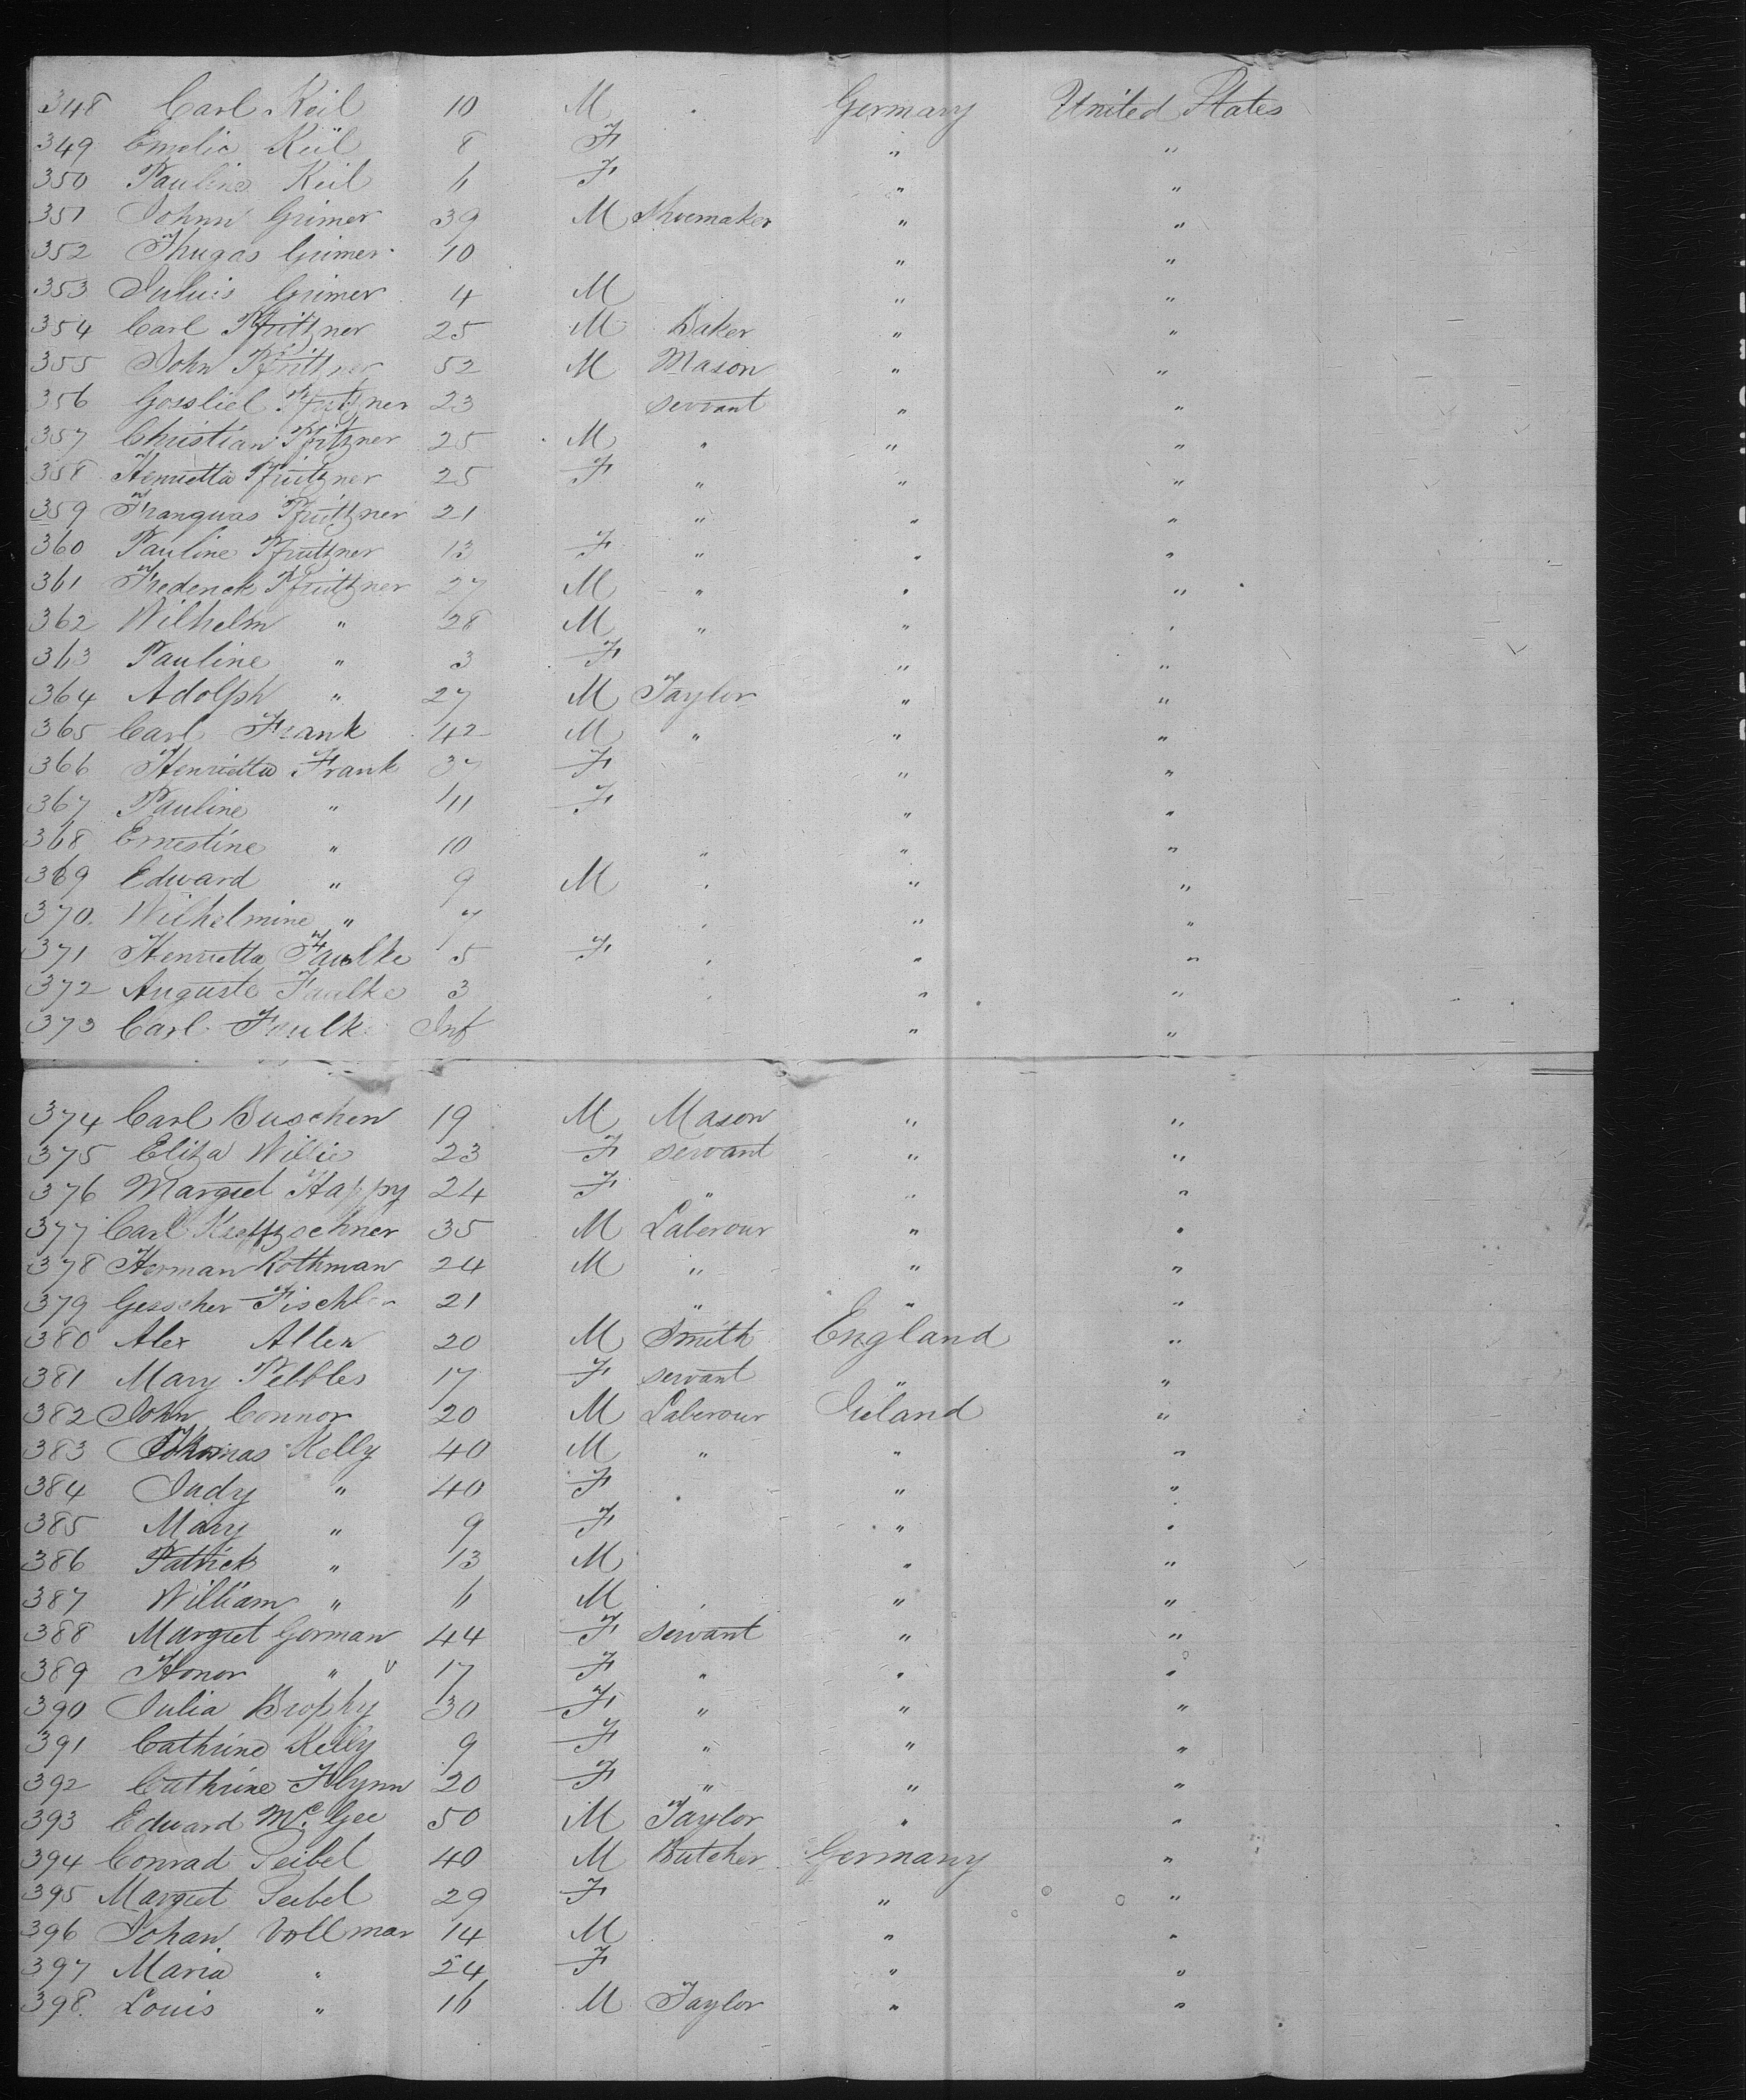 348 Carl Keil 10 M " Germany United States
349 Emelie Keil 8 F " "
350 Pauline Keil 6 F " "
351 Johnn Grimer 39 M Shuemaker " "
352 Thugas Grimer 10 " "
353 Julius Grimer 4 M " "
354 Carl Pfüttzner 25 M Baker " "
355 John Pfüttzner 52 M Mason " "
356 Gossliel Pfüttzner 23 servant " "
357 Christian Pfitzner 25 M " " "
358 Henrietta Pfüttzner 25 F " " "
359 Franquas Pfüttzner 21 " " "
360 Pauline Pfüttzner 13 F " " "
361 Frederick Pfüttzner 27 M " " "
362 Wilhelm " 28 M " " "
363 Pauline " 3 F " "
364 Adolph " 27 M Taylor " "
365 Carl Frank 42 M " " "
366 Henrietta Frank 37 F " "
367 Pauline " 11 F " "
368 Ernestine " 10 " " "
369 Edward " 9 M " " "
370. Wilhelmine " 7 " " "
371 Henrietta Faulke 5 F " " "
372 Auguste Faulke 3 " " "
373 Carl Faulk Inf " "
374 Carl Buschen 19 M Mason " "
375 Eliza Willie 23 F servant " "
376 Margret Happy 24 F " " "
377 Carl 35 M Laberour " "
378 Herman Rothman 24 M " " "
379 Gesscher Fischler 21 " " "
380 Alex Allen 20 M Smith England "
381 Mary Pebbles 17 F servant " "
382 John Connor 20 M Laberour Ireland "
383 Thomas Kelly 40 M " " "
384 Judy " 40 F " "
385 Mary " 9 F " "
386 Patrick " 13 M " "
387 William " 6 M " "
388 Margret Gorman 44 F servant " "
389 Honor " 17 F " " "
390 Julia Brophy 30 F " " "
391 Cathrine Kelly 9 F " " "
392 Cathrine Flynn 20 F " " "
393 Edward McGee 50 M Taylor " "
394 Conrad Seibel 40 M Butcher Germany "
395 Margret Seibel 29 F " "
396 Johan Vollmar 14 M " "
397 Maria " 24 F " "
398. Louis " 16 M Taylor " "